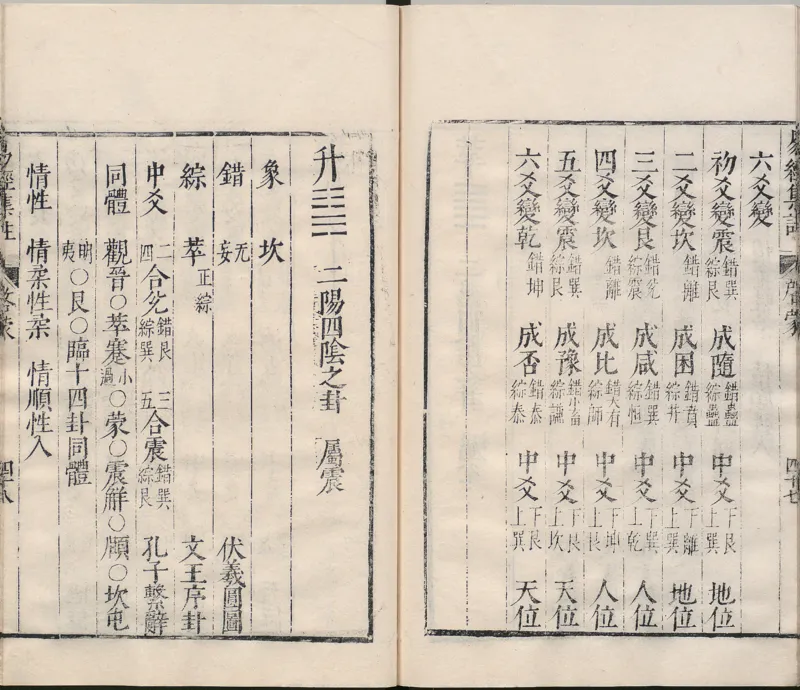 六爻變
初爻變震 錯巽綜艮 成隨 錯蠱綜蠱 中爻 下艮上巽 地位
二爻變坎 錯離 成困 錯賁綜井 中爻 下離上巽 地位
三爻變艮 錯兌綜震 成咸 錯損綜恒 中爻 下巽上乾 人位
四爻變坎 錯離 成比 錯大有綜師 中爻 下坤上艮 人位
五爻變震 錯巽綜艮 成豫 錯小畜綜謙 中爻 下艮上坎 天位
六爻變乾 錯坤 成否 錯泰綜泰 中爻 下艮上巽 天位
四十七
升 二陽四陰之卦 屬震
象 坎
錯 无妄 伏羲圓圖
綜 萃 正綜 文王序卦
中爻 二四合兌 錯艮綜巽 三五合震 錯巽綜艮 孔子繫辭
同體 觀晉○萃蹇小過○蒙○震解○頤○坎屯
明夷○艮○臨十四卦同體
情性 情柔性柔 情順性入
易經集註 啓蒙 四十八